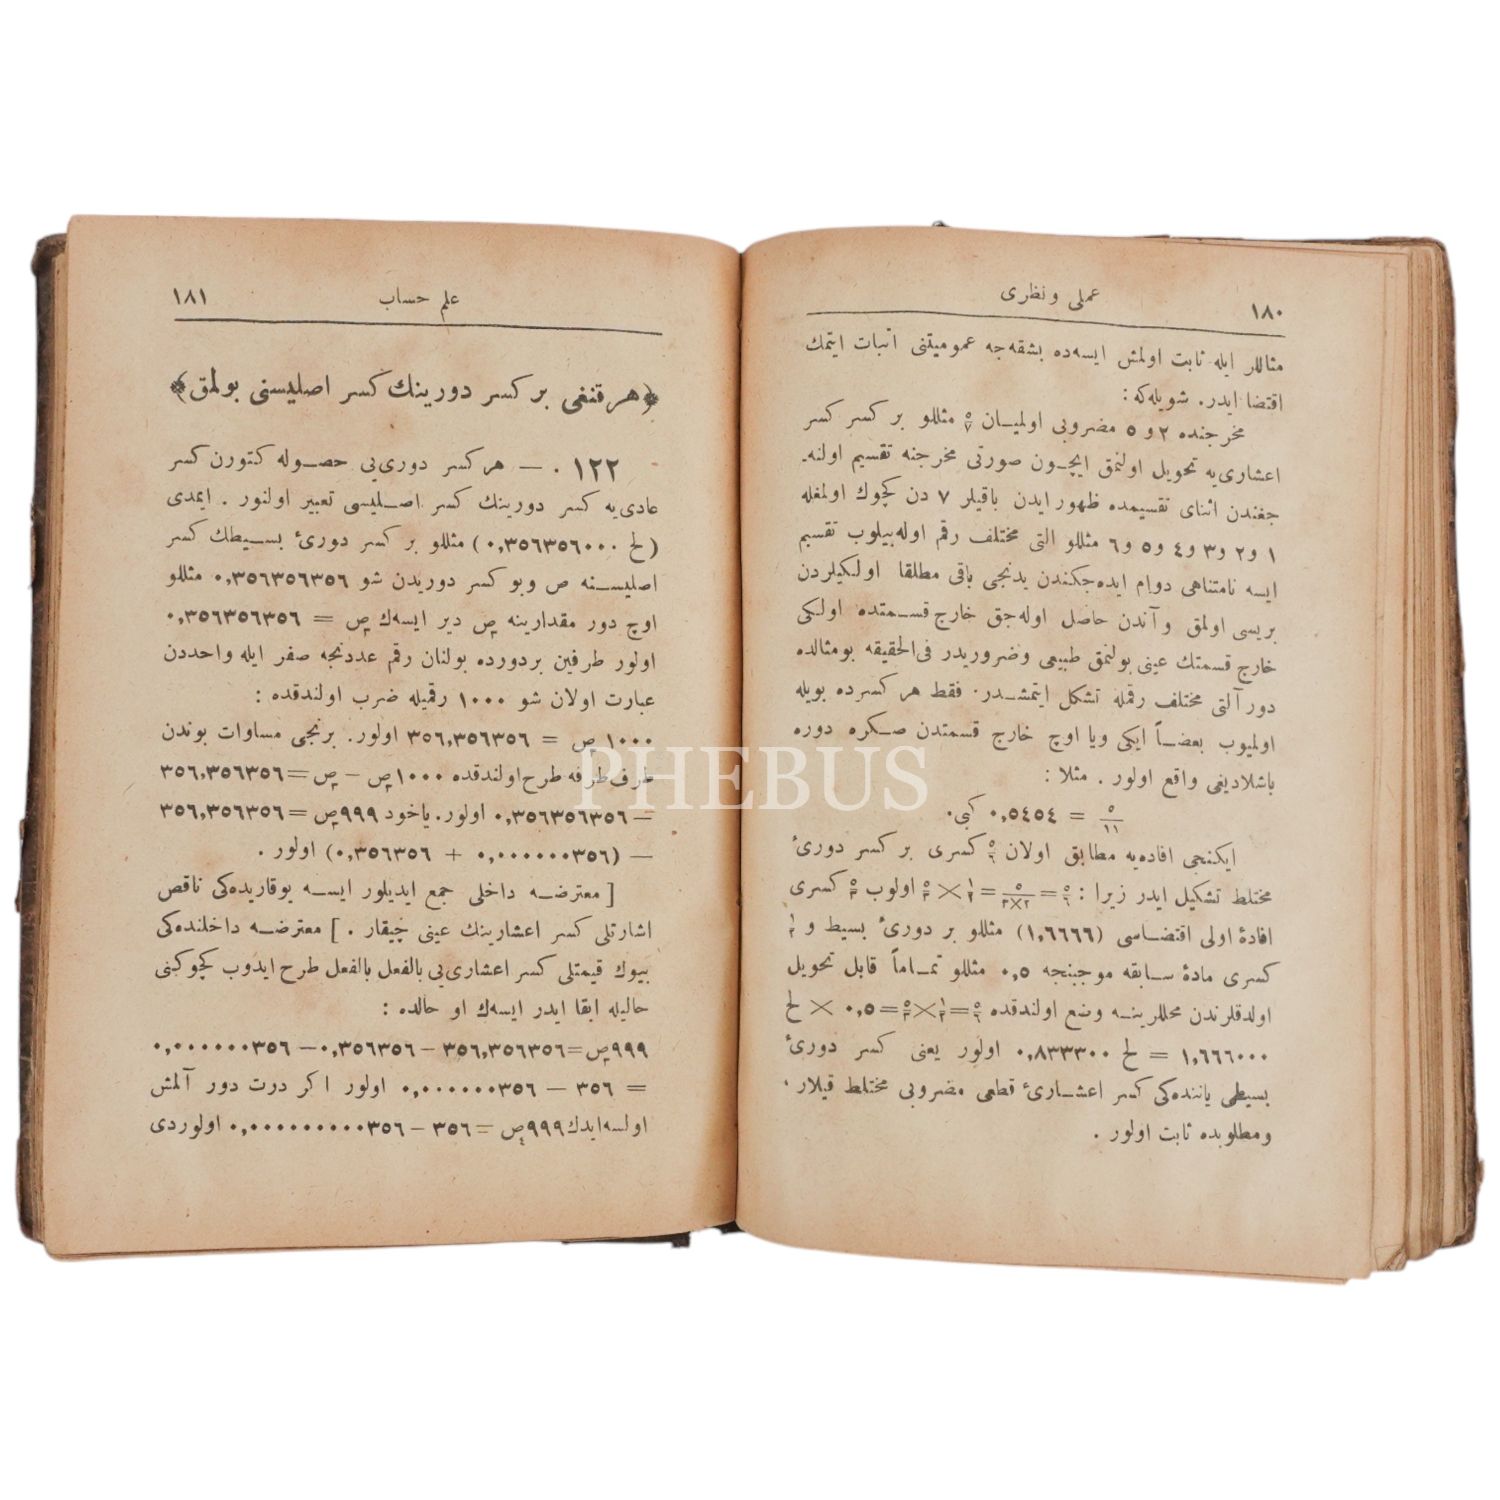 ١٨٠
عملی و نظری
مثاللر ایله ثابت اولمش ایسه‌ده بشقه‌جه عمومیتنی اثبات ایتمك
اقتضا ایدر. شویله‌که :
مخرجنده ٢ و ٥ مضروبی اولمیـان ٥/٧ مثللو بر کسر کسر
اعشاری‌یه تحویل اولنمق ایچـون صورتی مخرجنه تقسیم اولنه‌ـ
جغندن اثنای تقسیمده ظهور ایدن باقیلر ٧ دن کچوك اولمغله
١ و ٢ و ٣ و ٤ و ٥ و ٦ مثللو التی مختلف رقم اوله‌بیلوب تقسیم
ایسه نامتناهی دوام ایده‌جکندن یدنجی باقی مطلقا اولکیلردن
بریسی اولمق و آندن حاصل اوله‌جق خارج قسـمتده اولکی
خارج قسمتك عینی بولنمق طبیعی و ضروریدر فی‌الحقیقه بو مثالده
دور آلتی مختلف رقمله تشکل ایتمشـدر. فقط هر کسرده بویله
اولمیوب بعضـاً ایکی ویا اوچ خارج قسمتدن صـکره دوره
باشلادیغی واقع اولور . مثلا :
٥/١١ = ٠,٥٤٥٤ کبی.
ایکنجی افاده‌یه مطابق اولان ٥/٦ کسری بر کسر دورئ
مختلط تشکیل ایدر زیرا : ٥/٦ = ٥/٣×٢ = ١/٢ × ٥/٣ اولوب ٥/٣ کسری
افادهٔ اولی اقتضـاسی (١,٦٦٦٦) مثللو بر دورئ بسیط و ١/٢
کسری مادهٔ سـابقه موجبنجه ٠,٥ مثللو تمـاماً قابل تحویل
اولدقلرندن محللرینـه وضع اولندقده ٥/٦ = ١/٢ × ٥/٣ = ٠,٥ × لح
١,٦٦٦٠٠٠ = لح ٠,٨٣٣٣٠٠ اولور یعنی کسر دورئ
بسیطی یاننده‌کی کسر اعشـارئ قطعی مضروبی مختلط قیلار .
و مطلوبده ثابت اولور .
علم حساب
١٨١
﴿هر قنغی بر کسر دورینك کسر اصلیسنی بولمق﴾
١٢٢ . — هر کسر دوری‌یی حصـوله کتورن کسر
عادی‌یه کسر دورینك کسر اصـلیسی تعبیر اولنور . ایمدی
(لح ٠,٣٥٦٣٥٦٠٠٠) مثللو بر کسر دورئ بسـیطك کسر
اصلیسـنه ص و بو کسر دوریدن شو ٠,٣٥٦٣٥٦٣٥٦ مثللو
اوچ دور مقدارینه ص٣ دیر ایسه‌ك ص٣ = ٠,٣٥٦٣٥٦٣٥٦
اولور طرفین بر دورده بولنان رقم عددنجه صفر ایله واحددن
عبارت اولان شو ١٠٠٠ رقمیله ضرب اولندقده :
١٠٠٠ ص٣ = ٣٥٦,٣٥٦٣٥٦ اولور. برنجی مساوات بوندن
طرف طرفه طرح اولندقده ١٠٠٠ ص٣ − ص٣ = ٣٥٦,٣٥٦٣٥٦
− ٠,٣٥٦٣٥٦٣٥٦ اولور. یاخود ٩٩٩ ص٣ = ٣٥٦,٣٥٦٣٥٦
— (٠,٠٠٠٠٠٠٣٥٦ + ٠,٣٥٦٣٥٦) اولور .
[ معترضـه داخلی جمع ایدیلور ایسـه یوقاریده‌کی ناقص
اشارتلی کسر اعشارینك عینی چیقار . ] معترضـه داخلنده‌کی
بیوك قیمتلی کسر اعشاری‌یی بالفعل بالفعل طرح ایدوب کچوکینی
حالیله ابقا ایدر ایسه‌ك او حالده :
٩٩٩ ص٣ = ٣٥٦,٣٥٦٣٥٦ − ٠,٣٥٦٣٥٦ − ٠,٠٠٠٠٠٠٣٥٦
= ٣٥٦ − ٠,٠٠٠٠٠٠٣٥٦ اولور اکر درت دور آلمش
اولسه‌ایدك ٩٩٩ ص٤ = ٣٥٦ − ٠,٠٠٠٠٠٠٠٠٠٣٥٦ اولوردی
PHEBUS